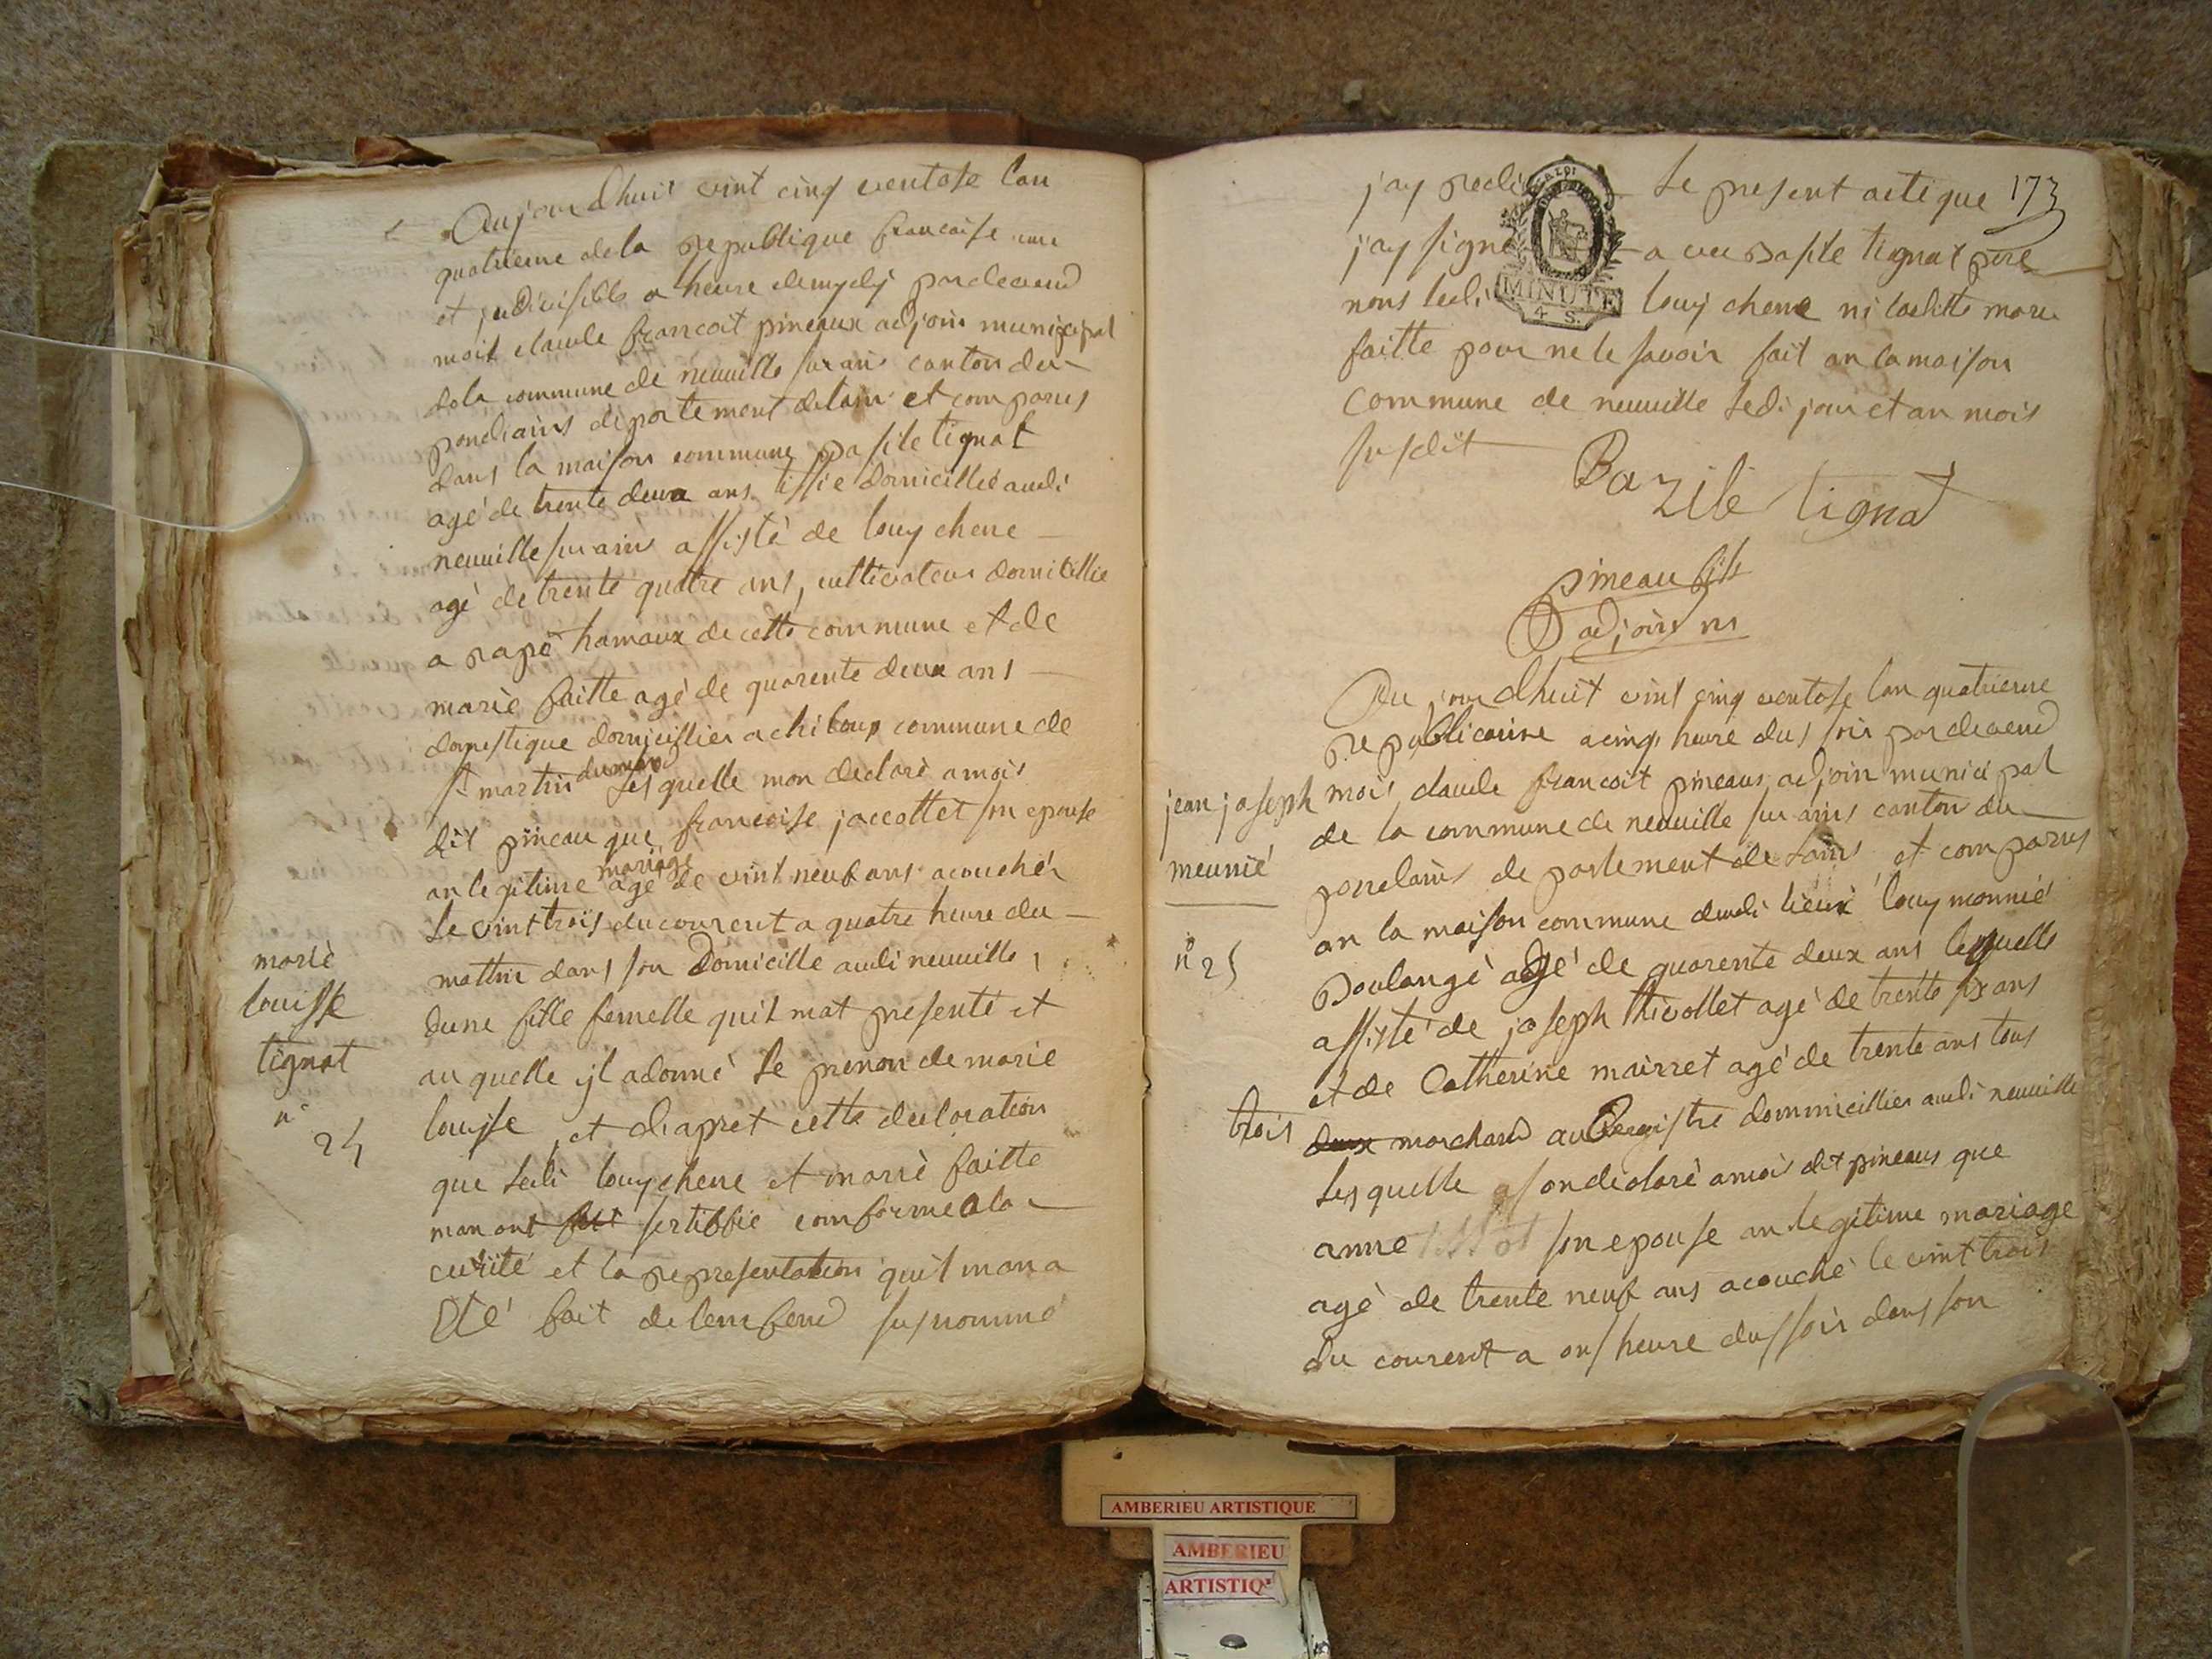 Aujourdhuit vint cinq ventose lan
quatrieme dela republique francaise une
et jndivisible a heure demydj pardevend
moit claude francoit pineaux adjoin municipal
dela commune de neuville sur ain canton du
pondiains departement delain et comparus
dans la maison commune basile tignat
agé de trente deux ans tissie domicillié audi
neuville sur ains assisté de louy chene
agé de trente quatre ans, cultivateur domicillie
a rapé hamaux de cette commune et de
marie faitte agé de quarente deux ans
domestique domicillier a chiloup commune de
st martin dumond lesquelle mon declaré amois
dit pineau que francoise jacottet son epouse
an legitime mariage agé de vint neuf ans acouchér
Le vint trois du courent a quatre heure du
mattin dans son Domicille audi neuville,
dune fille femelle quil mat presenté et
au quelle jl adonné Le prenon de marie
louisse et diapret cette declaration
que Ledi louy chene et marie faitte
man ont fait sertiffié comforme a la
curité et la representation quil man a
Eté fait de lemfend susnommé
marié
louisse
tignat
n°
24
173
jay redi Le present acte que
jay signé avec basile tignat pere
MINUTE
4 S.
nons ledi louy chene ni laditte marie
faitte pour ne le savoir fait an la maison
commune de neuville Ledi jour et an mois
susdit
Bazile tignat
pineau fils
adjoin
Aujourdhuit vint cinq ventose lan quatrieme
republicaine a cinq heure dus soir pardevend
mois claude francoit pineaus adjoin municipal
de la commune de neuville sur ains canton du
pondains departement de lains et comparus
an la maison commune dudi lieux louy monnié
Boulangé agé de quarente deux ans lequelle
assisté de joseph thivollet agé de trente six ans
et de Catherine mairret agé de trente ans tous
trois deux marchand aubergistre dommicillier audi neuville
Lesquelle son déclaré amoi dit pineaus que
anne tissot son epouse an legitime mariage
agé de trente neuf ans acouché le vint trois
du courent a ons heure dussoir dans son
jean joseph
meunié
n° 25
AMBERIEU ARTISTIQUE
AMBERIEU
ARTISTIQ